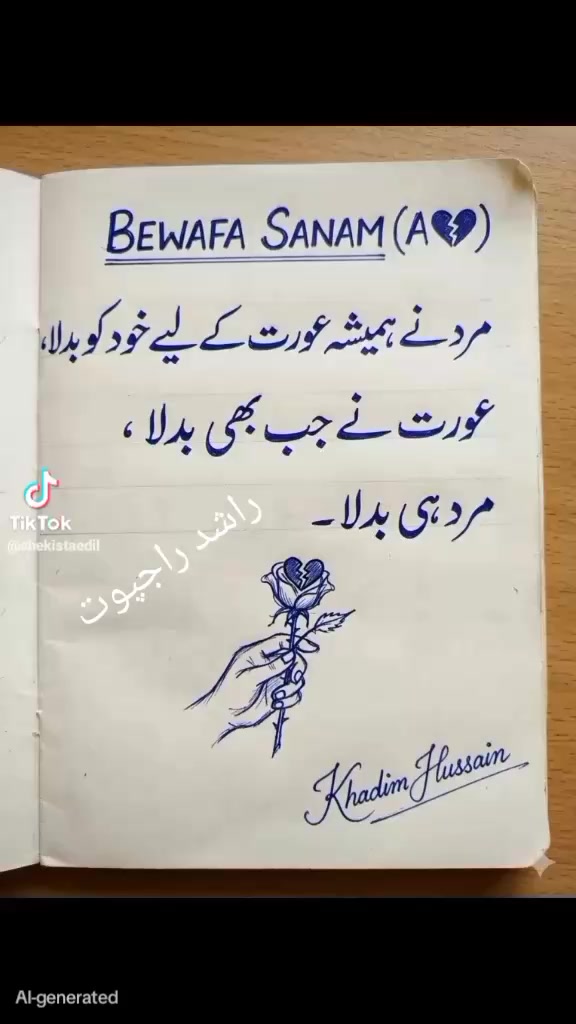 BEWAFA SANAM (A💔)
مرد نے ہمیشہ عورت کے لیے خود کو بدلا،
عورت نے جب بھی بدلا،
مرد ہی بدلا۔
TikTok
@shekistaedil
راشد راجپوت
Khadim Hussain
AI-generated